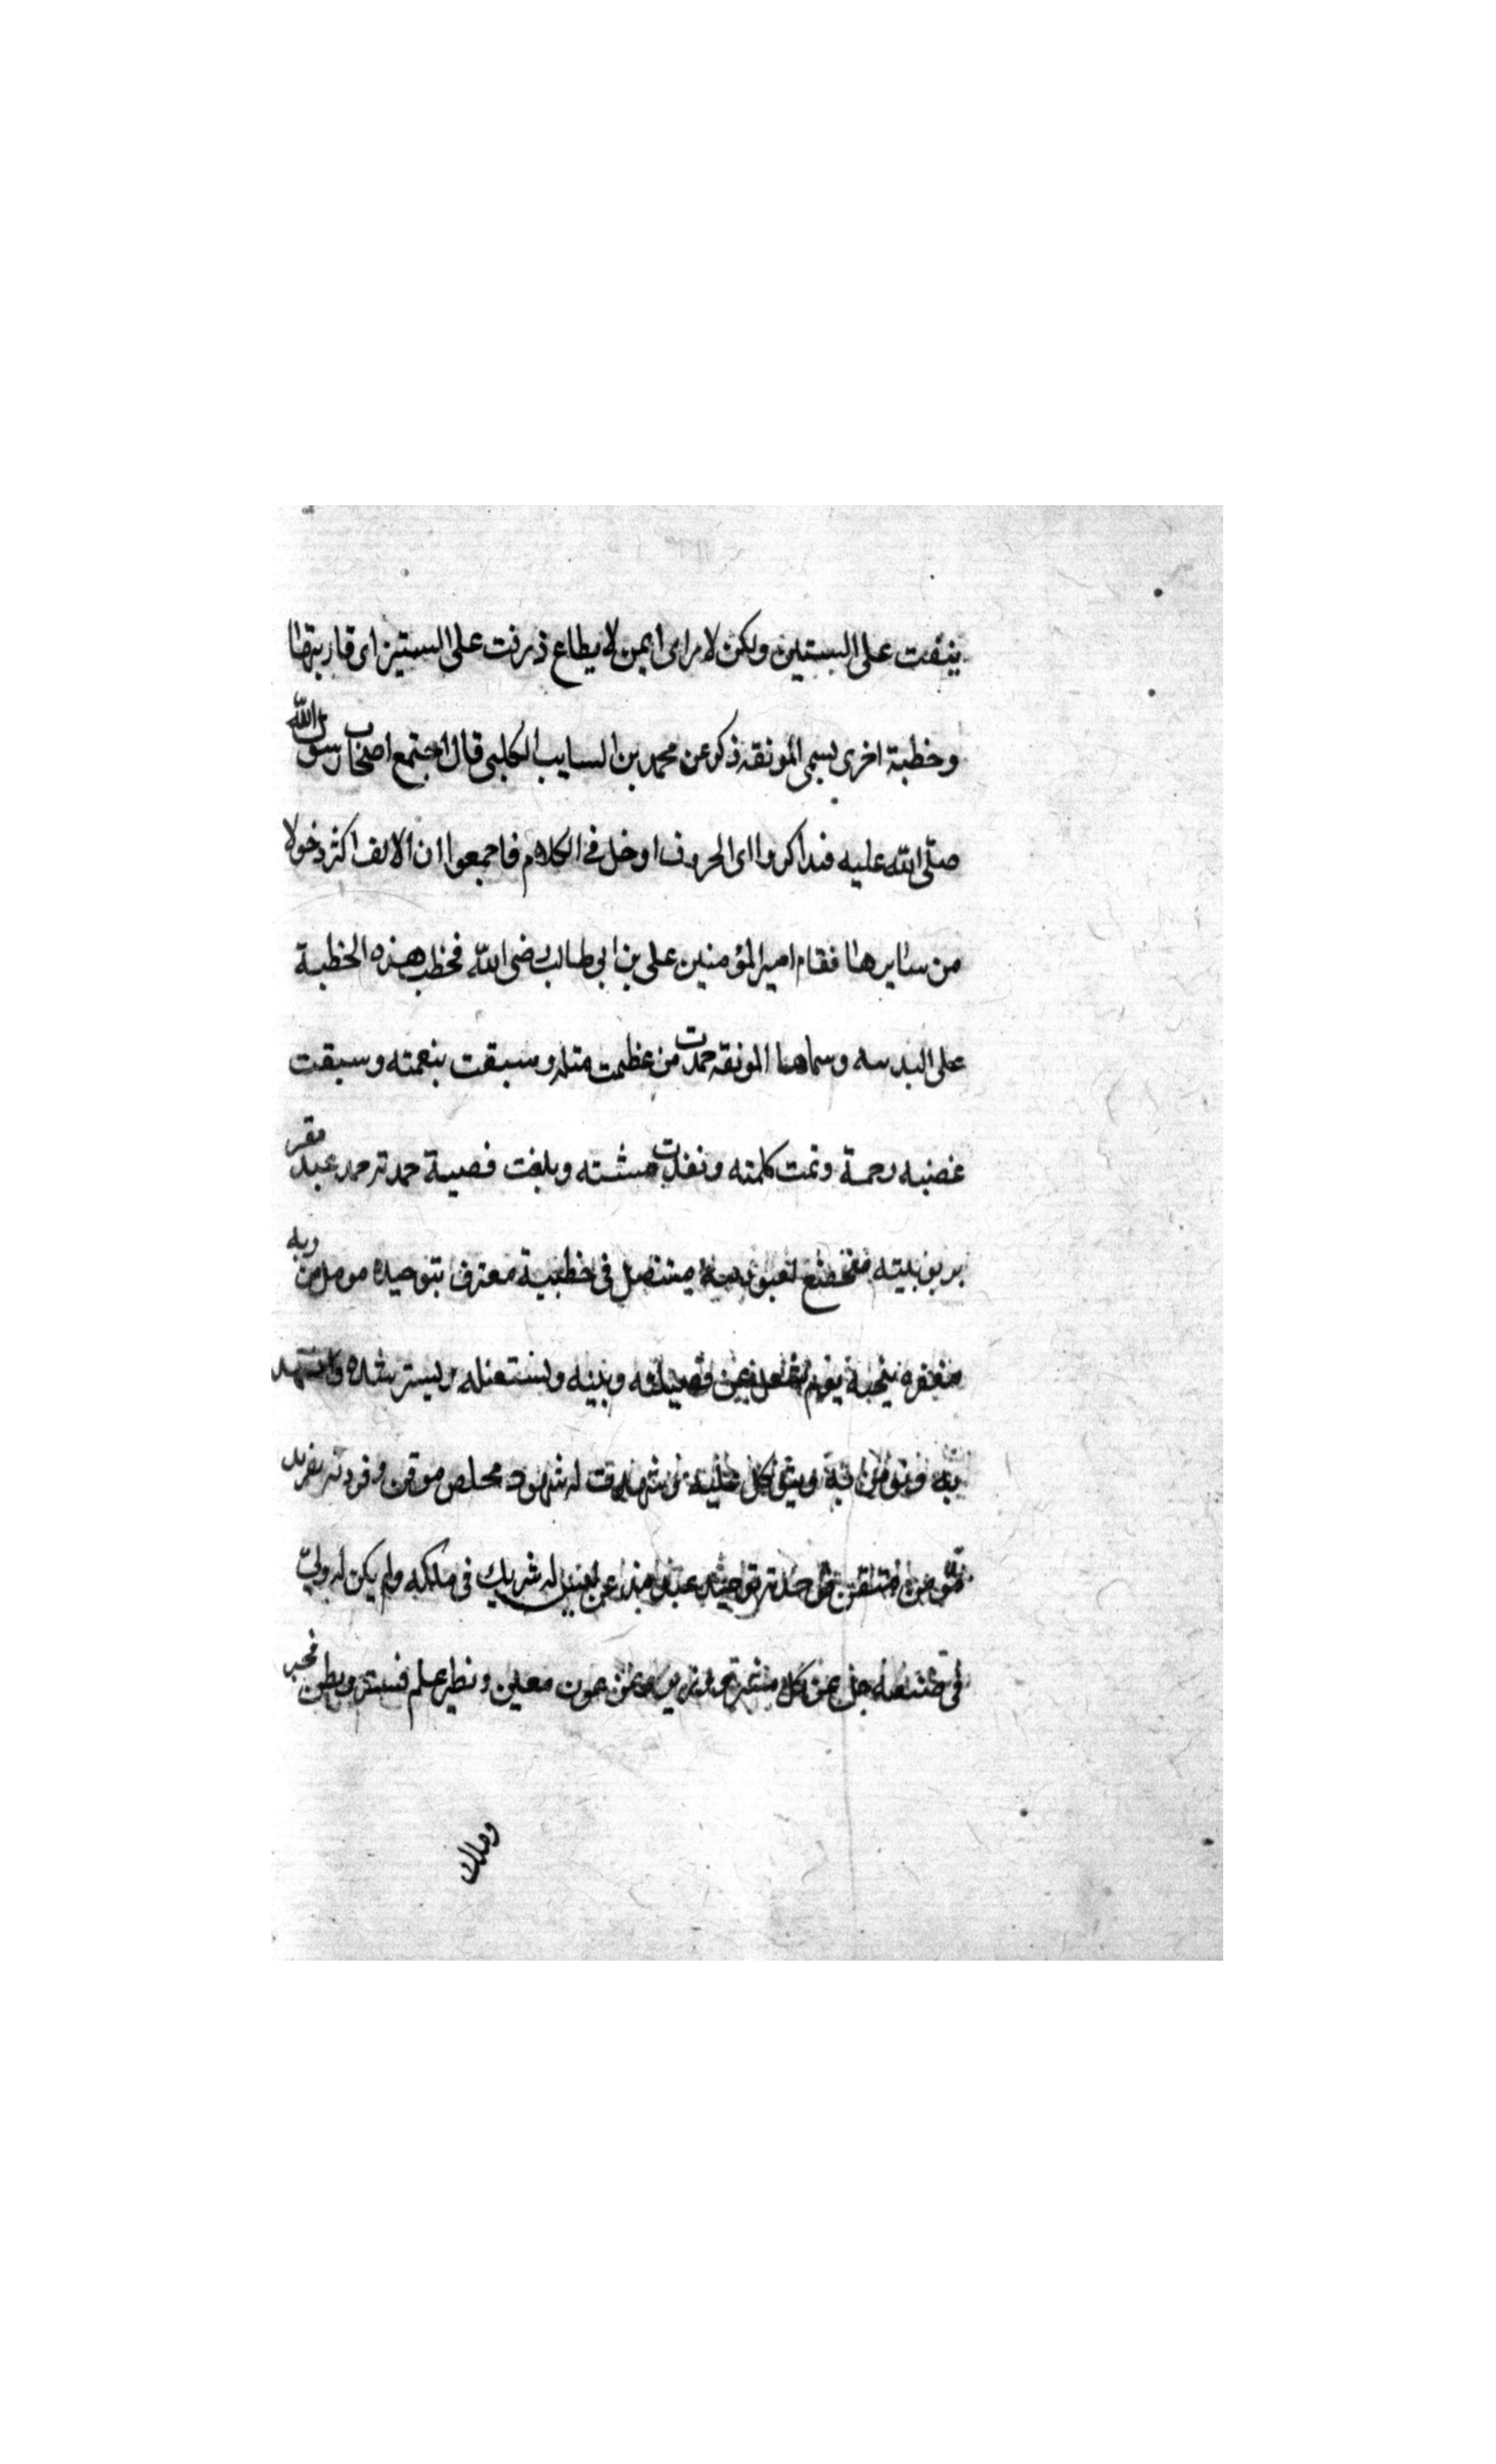 ينفت على الستين ولكن لا راى لمن لا يطاع ذرفت على الستين اى قاربتها
وخطبة اخرى يسمى المونقه ذكر عن محمد بن السايب الكلبى قال اجتمع اصحاب رسول الله
صلى الله عليه فتذاكروا اى الحروف ادخل فى الكلام فاجمعوا ان الالف اكثر دخولا
من سايرها فقام امير المؤمنين على بن ابى طالب رضى الله فخطب هذه الخطبة
على البديه وسماها المونقه حمدت من عظمت منته وسبقت بنعمته وسبقت
غضبه رحمة وتمت كلمته ونفذت مشته وبلغت قضية حمدته حمد عبد مقر
بربوبيته متخضع لعبوديته متنصل فى خطيية معترف بتوحيده مومل من ربه
مغفره ينجيه يوم عن فصيلته وبنيه ونستعينه ونسترشده
به ونؤمن به ونتوكل عليه شهدت له شهود مخلص موقن وفردته تفريد
مؤمن متيقن حدته توحيد عبد مذعن ليس له شريك فى ملكه ولم يكن له ولى
فى صنعه جل عن مشير ووزير وعن عون معين ونظير علم فستر وبطن فخبر
وملك